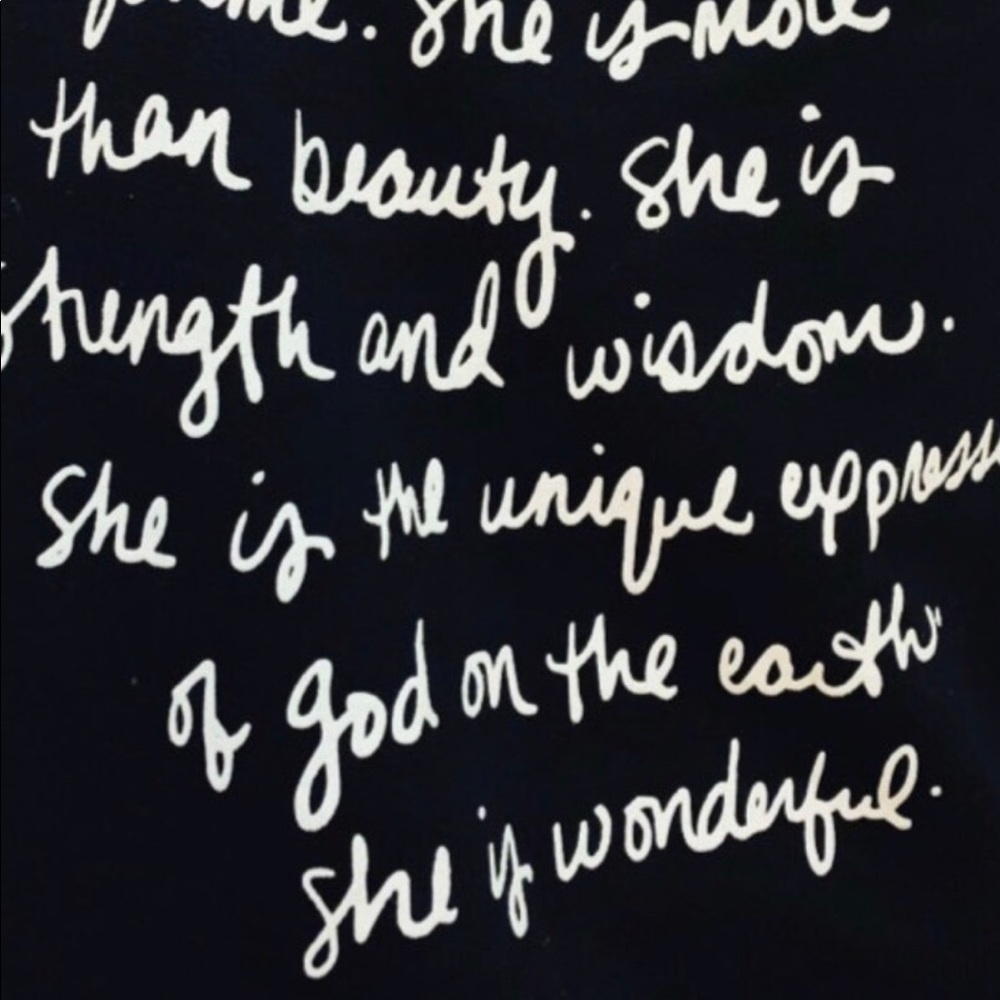 She is more
than beauty. She is
strength and wisdom.
She is the unique express
of god on the earth"
She is wonderful.